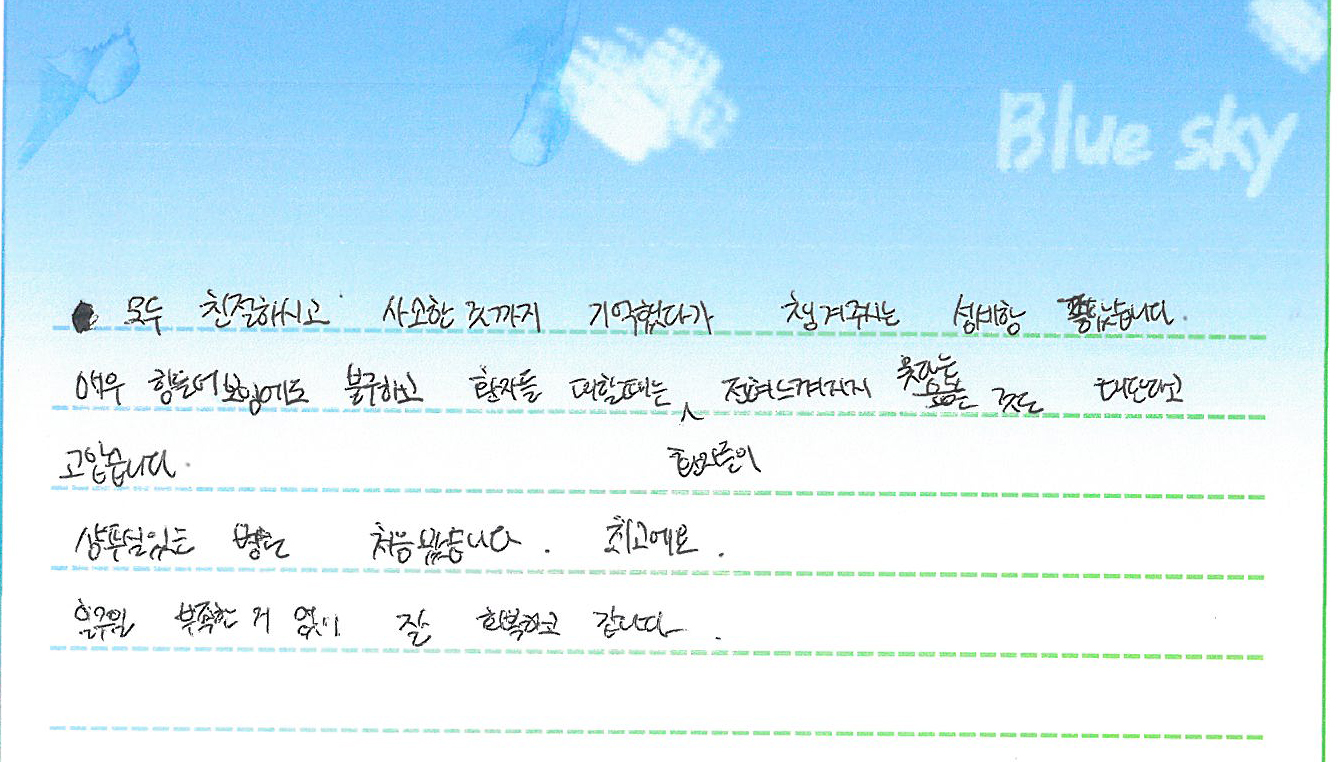 Blue sky
모두 친절하시고 사소한 것까지 기억했다가 챙겨주시는 섬세함 좋았습니다.
매우 힘들어보임에도 불구하고 환자들 대할때는 환자들이 전혀느껴지지 못하는 것도 대단하고
고맙습니다.
있는 병원은 처음봤습니다. 최고에요.
일주일 부족한 거 없이 잘 회복하고 갑니다.